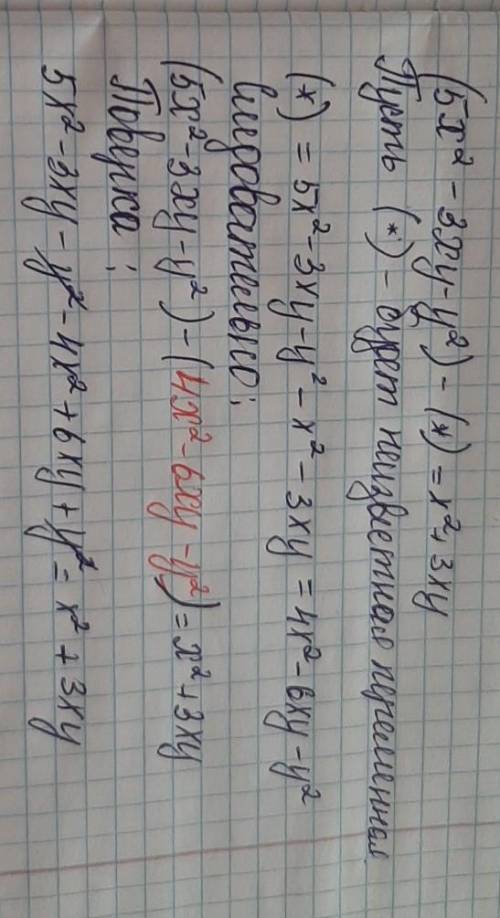 (5x² - 3xy - y²) - (*) = x² + 3xy
Пусть (*) - будет неизвестная переменная
(*) = 5x² - 3xy - y² - x² - 3xy = 4x² - 6xy - y²
(5x² - 3xy - y²) - (4x² - 6xy - y²) = x² + 3xy
5x² - 3xy - y² - 4x² + 6xy + y² = x² + 3xy